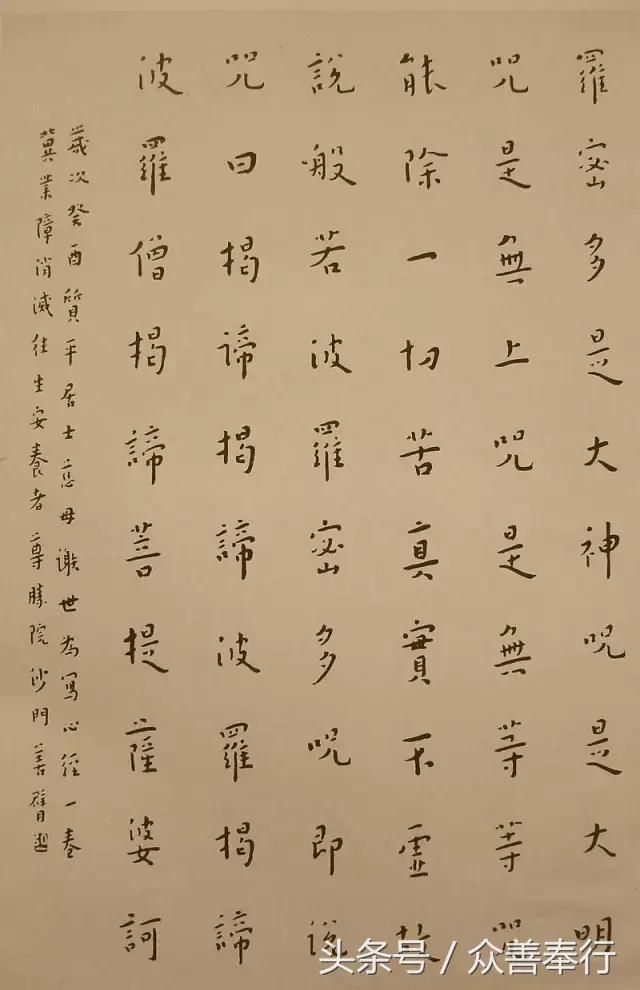 羅密多是大神呪是大明
呪是無上呪是無等等呪
能除一切苦真實不虛故
說般若波羅密多呪即說
呪曰揭諦揭諦波羅揭諦
波羅僧揭諦菩提薩婆訶
歲次癸酉質平居士慈母謝世為寫心經一卷
冀業障消滅往生安養者尊勝院沙門善臂
头条号 / 众善奉行